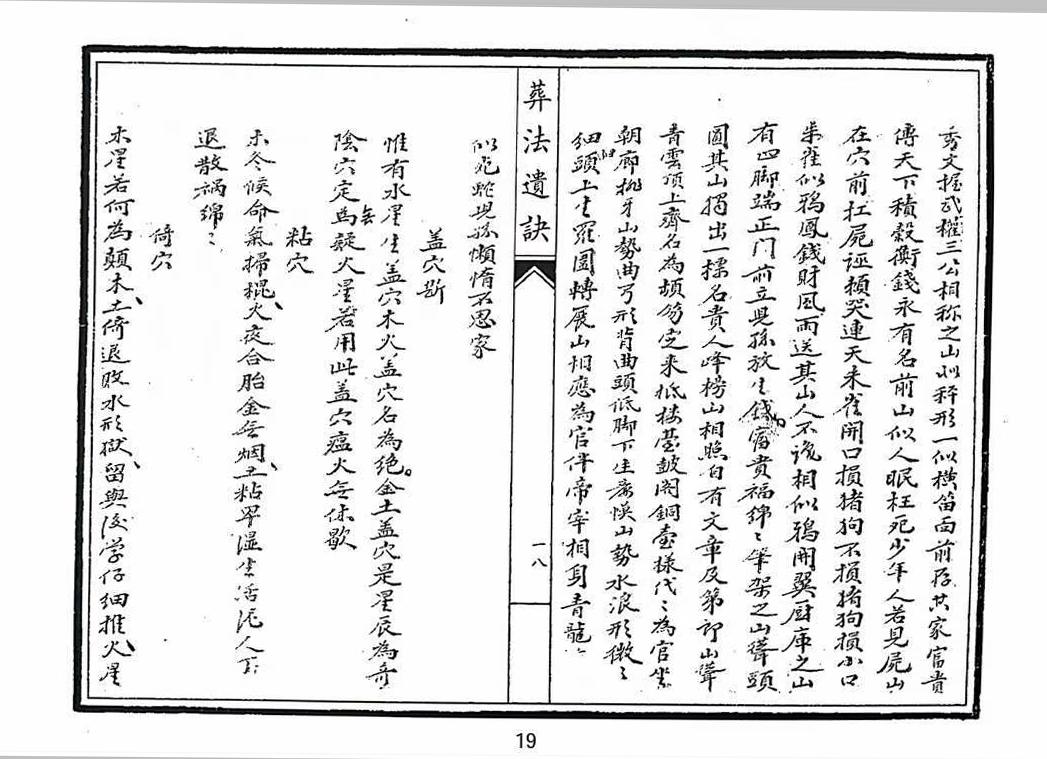 秀文握武權三公相称之山似秤形一似橫笛面前存其家富貴
傳天下積穀衡錢永有名前山似人眠枉死少年人若見屍山
在穴前扛屍誣損哭連天朱雀開口損猪狗不損猪狗損小口
朱雀似鴉鳳錢財風雨送其山人不識相似鴉開翼厨庫之山
有四脚端正门前立見孫放生錢富貴福綿〻筆架之山聳頭
圓其山獨出一標名貴人峰榜山相照自有文章及第印山聳
青雲頂上齊名為頓笏定來抵樓臺鼓閣銅臺樣代〻為官坐
朝廊排牙山勢曲弓形背曲頭低脚下生山勢水浪形微〻
細頭上生羅圍轉展山相應為官伴帝宰相身青龍
似死蛇現孫懶惰不思家
盖穴斷
惟有水星生盖穴木火盖穴名為絶金土盖穴是星辰為奇
陰穴定為無疑火星若用此盖穴瘟火無休歇
粘穴
木冬候命氣掃棍火夜合胎金無烟土粘翠湿生活泥人丁
退散禍綿〻
倚穴
木星若何為顛木土倚退敗水形獄留與後学仔细推火星
葬法遺訣
一八
19